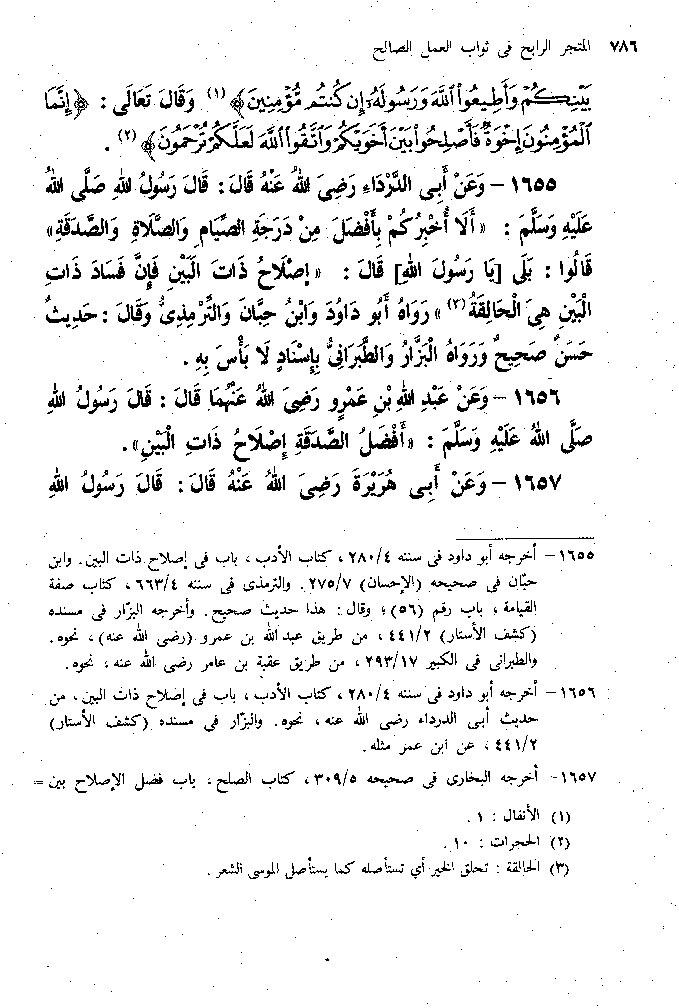 ٧٨٦ المتجر الرابح فى ثواب العمل الصالح
بَيْنِكُمْ وَأَطِيعُوا۟ ٱللَّهَ وَرَسُولَهُۥٓ إِن كُنتُم مُّؤْمِنِينَ﴾ (١) وَقَالَ تَعَالَى : ﴿إِنَّمَا
ٱلْمُؤْمِنُونَ إِخْوَةٌ فَأَصْلِحُوا۟ بَيْنَ أَخَوَيْكُمْ وَٱتَّقُوا۟ ٱللَّهَ لَعَلَّكُمْ تُرْحَمُونَ﴾ (٢) .
١٦٥٥ - وَعَنْ أَبِى الدَّرْدَاءِ رَضِىَ اللهُ عَنْهُ قَالَ : قَالَ رَسُولُ اللهِ صَلَّى اللهُ
عَلَيْهِ وَسَلَّمَ : «أَلَا أُخْبِرُكُمْ بِأَفْضَلَ مِنْ دَرَجَةِ الصِّيَامِ وَالصَّلَاةِ وَالصَّدَقَةِ»
قَالُوا : بَلَى [يَا رَسُولَ اللهِ] قَالَ : «إِصْلَاحُ ذَاتِ الْبَيْنِ فَإِنَّ فَسَادَ ذَاتِ
الْبَيْنِ هِىَ الْحَالِقَةُ (٣)» رَوَاهُ أَبُو دَاوُدَ وَابْنُ حِبَّانَ وَالتِّرْمِذِىُّ وَقَالَ : حَدِيثٌ
حَسَنٌ صَحِيحٌ وَرَوَاهُ الْبَزَّارُ وَالطَّبَرَانِىُّ بِإِسْنَادٍ لَا بَأْسَ بِهِ .
١٦٥٦ - وَعَنْ عَبْدِ اللهِ بْنِ عَمْرٍو رَضِىَ اللهُ عَنْهُمَا قَالَ : قَالَ رَسُولُ اللهِ
صَلَّى اللهُ عَلَيْهِ وَسَلَّمَ : «أَفْضَلُ الصَّدَقَةِ إِصْلَاحُ ذَاتِ الْبَيْنِ».
١٦٥٧ - وَعَنْ أَبِى هُرَيْرَةَ رَضِىَ اللهُ عَنْهُ قَالَ : قَالَ رَسُولُ اللهِ
١٦٥٥ - أخرجه أبو داود فى سننه ٢٨٠/٤ ، كتاب الأدب ، باب فى إصلاح ذات البين . وابن
حبّان فى صحيحه (الإحسان) ٢٧٥/٧ . والترمذى فى سننه ٦٦٣/٤ ، كتاب صفة
القيامة ، باب رقم (٥٦) ؛ وقال : هذا حديث صحيح . وأخرجه البزّار فى مسنده
(كشف الأستار) ٤٤١/٢ ، من طريق عبدالله بن عمرو (رضى الله عنه) ، نحوه .
والطبرانى فى الكبير ٢٩٣/١٧ ، من طريق عقبة بن عامر رضى الله عنه ، نحوه .
١٦٥٦ - أخرجه أبو داود فى سننه ٢٨٠/٤ ، كتاب الأدب ، باب فى إصلاح ذات البين ، من
حديث أبى الدرداء رضى الله عنه ، نحوه . والبزّار فى مسنده (كشف الأستار)
٤٤١/٢ ، عن ابن عمر مثله .
١٦٥٧- أخرجه البخارى فى صحيحه ٣٠٩/٥ ، كتاب الصلح ، باب فضل الإصلاح بين =
(١) الأنفال : ١ .
(٢) الحجرات : ١٠ .
(٣) الحالقة : تحلق الخير أي تستأصله كما يستأصل الموسى الشعر .